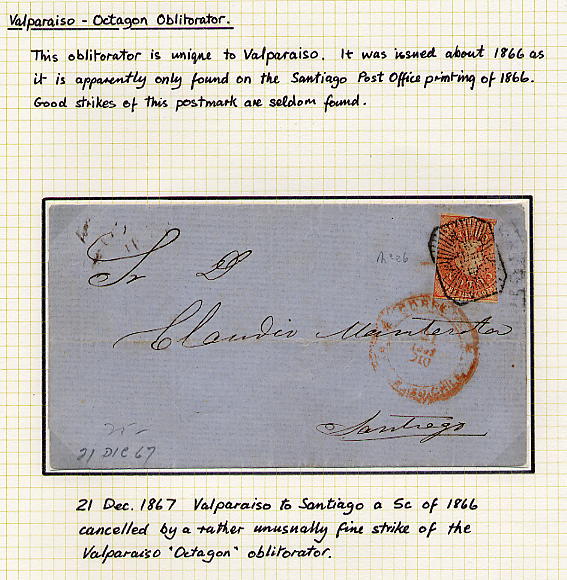 Valparaiso - Octagon Oblitorator.
This oblitorator is unique to Valparaiso. It was issued about 1866 as
it is apparently only found on the Santiago Post Office printing of 1866.
Good strikes of this postmark are seldom found.
Sr D
Claudio
Santiago
21 DIC 67
21 Dec. 1867 Valparaiso to Santiago a 5c of 1866
cancelled by a rather unusually fine strike of the
Valparaiso "Octagon" oblitorator.